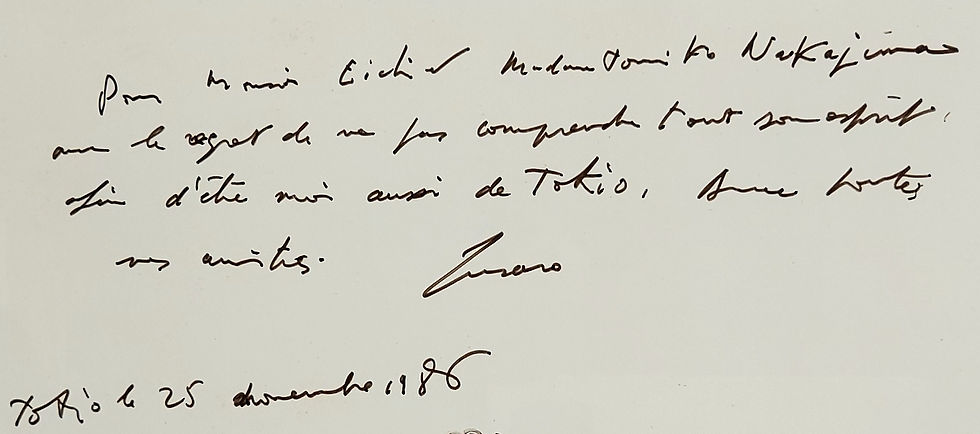 Pour Monsieur Eichi et Madame Tomiko Nakajima
avec le regret de ne pas comprendre tout son esprit,
afin d'être moi aussi de Tokio. Avec toutes
mes amitiés.
Tokio le 25 novembre 1986